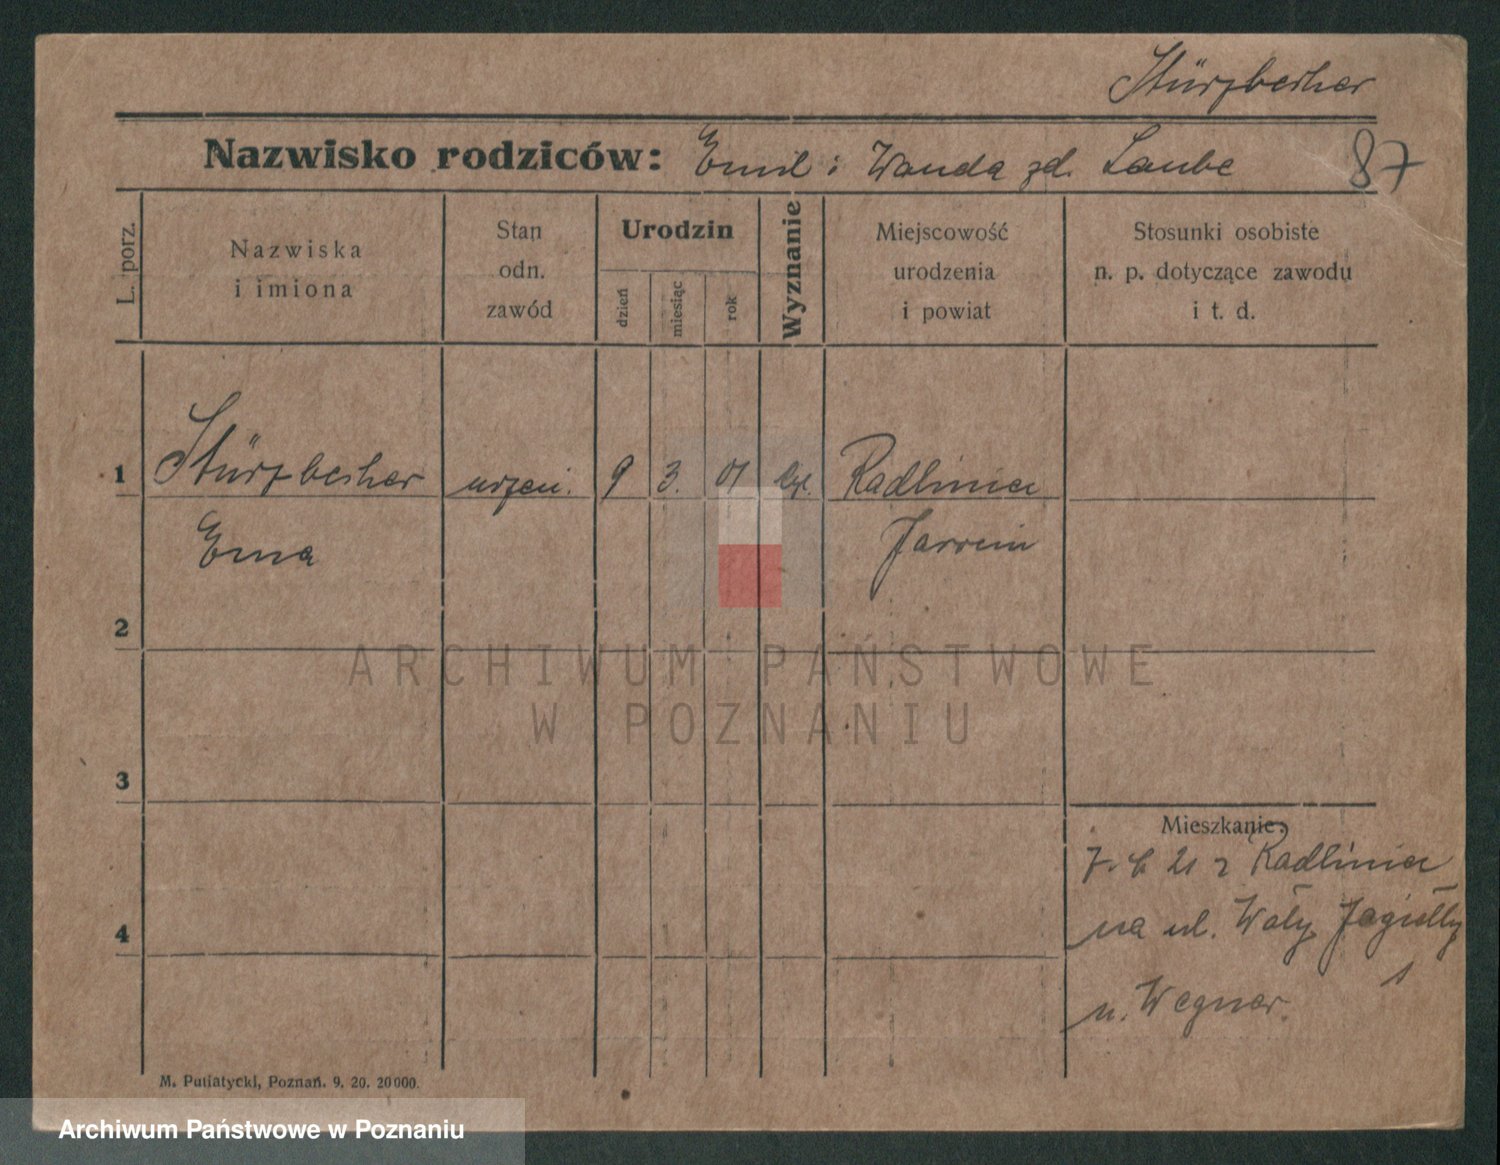 Stürzbecher
Nazwisko rodziców: Emil i Wanda zd. Laube 87
L. porz.
Nazwiska
i imiona
Stan
odn.
zawód
Urodzin
dzień
miesiąc
rok
Wyznanie
Miejscowość
urodzenia
i powiat
Stosunki osobiste
n. p. dotyczące zawodu
i t. d.
1 Stürzbecher 9 3. 01 Radlinica
Erna
2
3
Mieszkanie:
21 z Radlinica
na ul. Wały Jagiełły
4
1
u. Wegner.
M. Putiatycki, Poznań. 9. 20. 20000.
ARCHIWUM PAŃSTWOWE
W POZNANIU
Archiwum Państwowe w Poznaniu